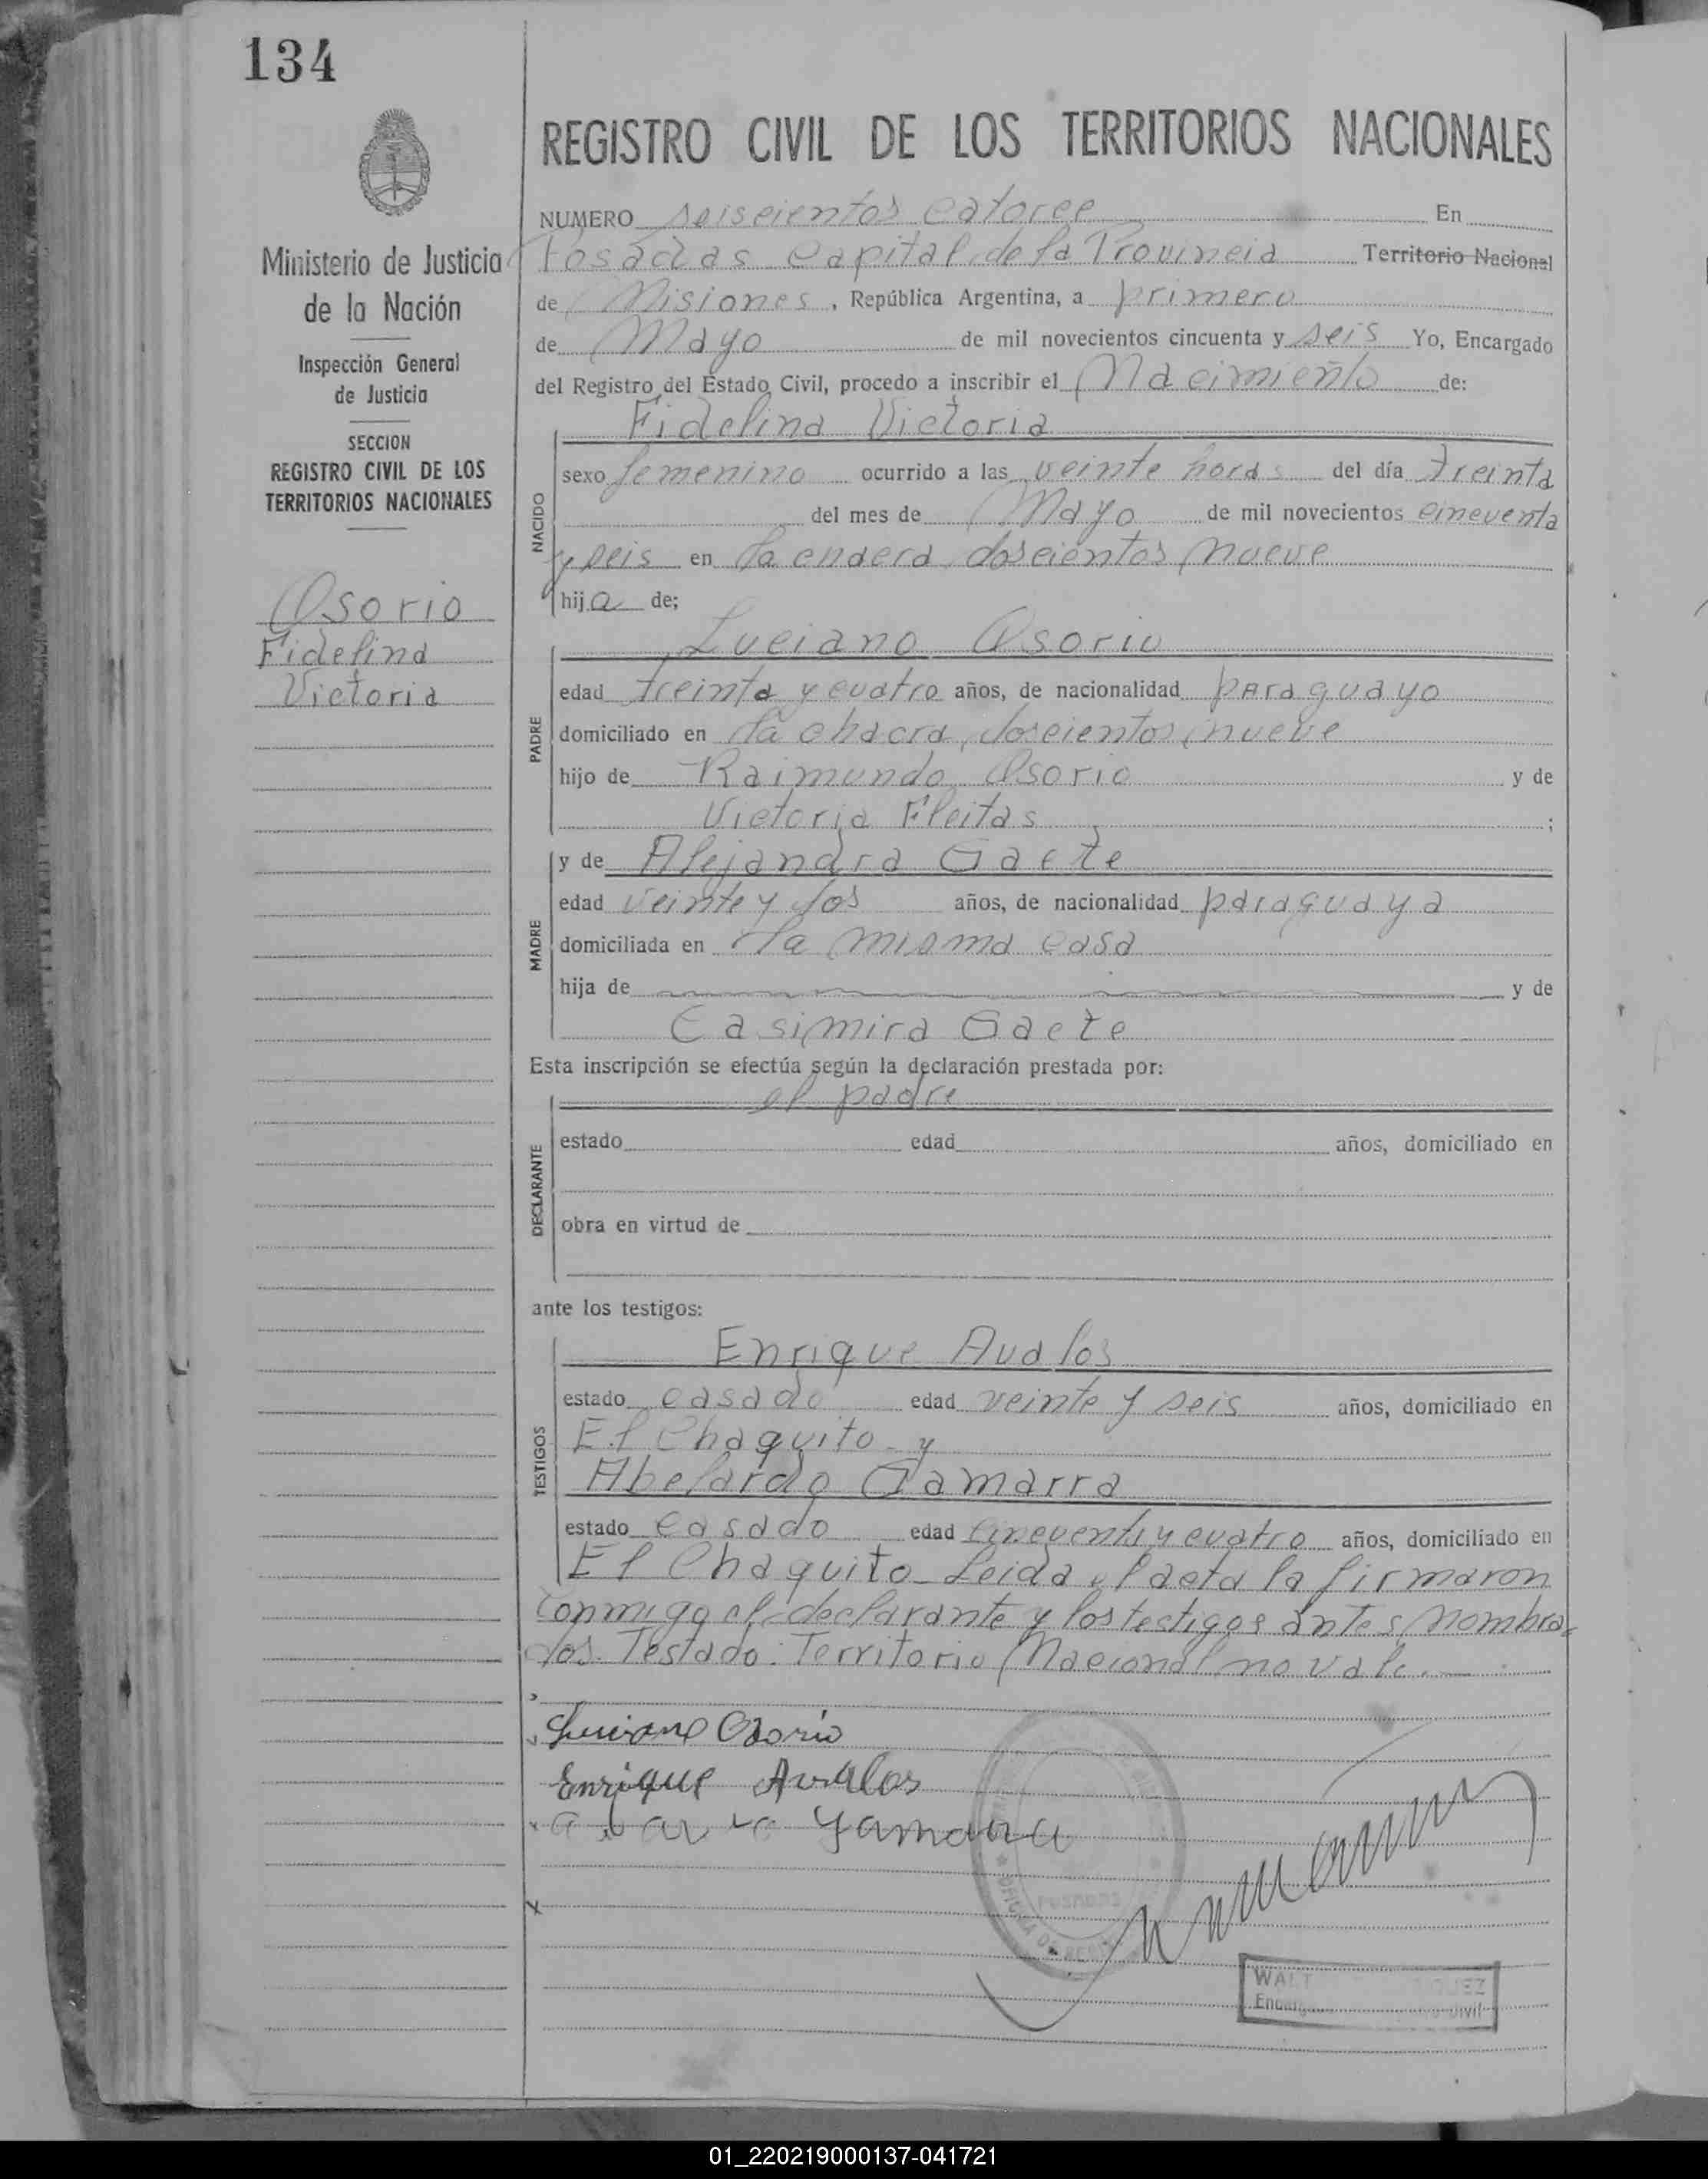 134
REGISTRO CIVIL DE LOS TERRITORIOS NACIONALES
Ministerio de Justicia
de la Nación
Inspección General
de Justicia
SECCION
REGISTRO CIVIL DE LOS
TERRITORIOS NACIONALES
Osorio
Fidelina
Victoria
NUMERO seiscientos catorce En
Posadas Capital de la Provincia Territorio Nacional
de Misiones, República Argentina, a primero
de Mayo de mil novecientos cincuenta y seis Yo, Encargado
del Registro del Estado Civil, procedo a inscribir el Nacimiento de:
Fidelina Victoria
NACIDO
sexo femenino ocurrido a las veinte horas del día treinta
del mes de Mayo de mil novecientos cincuenta
y seis en la chacra doscientos nueve
hija de;
Luciano Osorio
PADRE
edad treinta y cuatro años, de nacionalidad paraguayo
domiciliado en la chacra doscientos nueve
hijo de Raimundo Osorio y de
Victoria Fleitas ;
MADRE
y de Alejandra Gaete
edad veinte y dos años, de nacionalidad paraguaya
domiciliada en la misma casa
hija de y de
Casimira Gaete
Esta inscripción se efectúa según la declaración prestada por:
el padre
DECLARANTE
estado edad años, domiciliado en
obra en virtud de
ante los testigos:
Enrique Avalos
TESTIGOS
estado casado edad veinte y seis años, domiciliado en
El Chaquito y
Abelardo Gamarra
estado casado edad cincuenta y cuatro años, domiciliado en
El Chaquito Leida el acta la firmaron
conmigo el declarante y los testigos antes nombra=
dos. Testado: Territorio Nacional no vale.
Luciano Osorio
Enrique Avalos
Gamarra
POSADAS
01_220219000137-041721